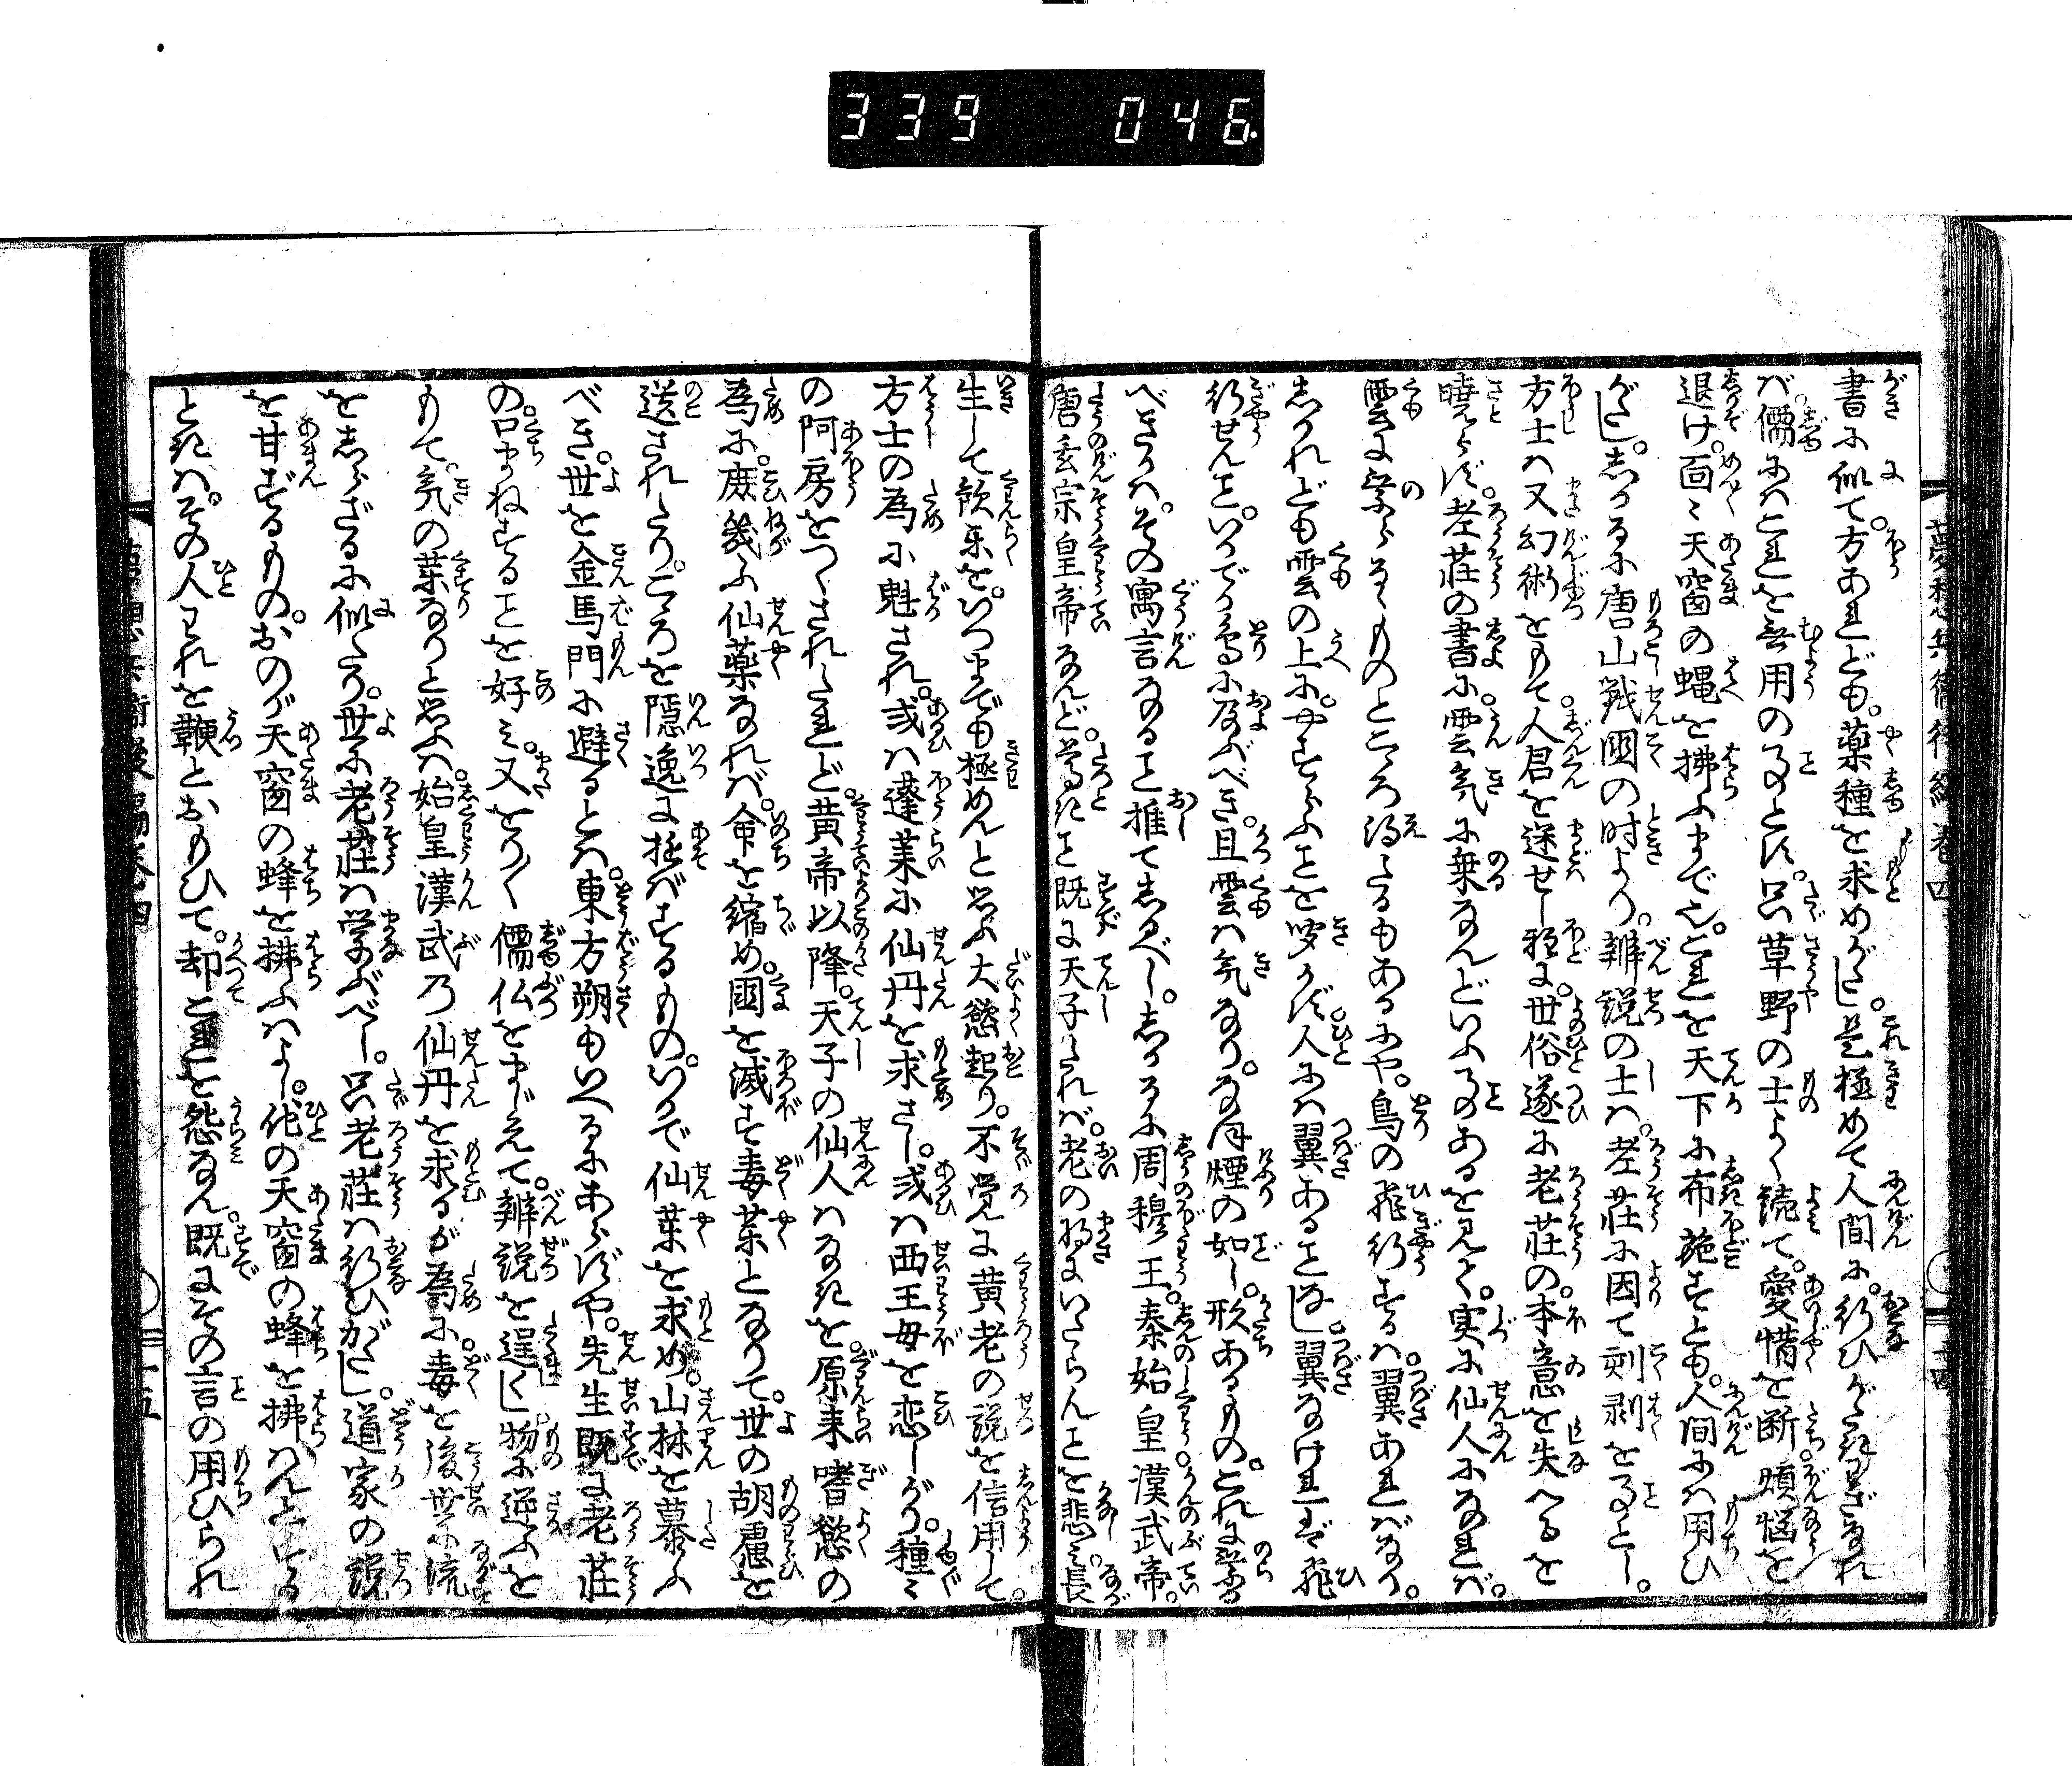 339 046
夢想兵衛後編巻四
書に似て方あれども。薬種を求めがたし。是極めて人間に。行ひがたきわざなれ
ば。儒にはこれを無用の事とす。只草野の士よく読て。愛惜を断。煩悩を
退け。面々天窗の蠅を拂ふまで也。これを天下に布施すとも。人間には用ひ
がたし。しかるに唐山戦國の时より。辨説の士は。老荘に因て刻剥を事とし。
方士は又幻術をもて。人君を迷せし程に。世俗遂に老荘の。本意を失へるを
暁らず。老荘の書に。雲気に乗なんどいふ事のあるを見て。実に仙人になれば。
雲に乗らるゝものとこゝろ得たるもあるにや。鳥の飛行するは。翼あればなり。
しかれども雲の上に。やすらふことを聞かず。人には翼あることなし。翼なければ飛
行せんこと。いかでか鳥に及ぶべき。且雲は気なり。なほ煙の如し。形あるもの。これに乗る
べきかは。その寓言なること推てしるべし。しかるに周穆王。秦始皇漢武帝。
唐玄宗皇帝なんど。尊きこと既に天子たれば。老の将にいたらんことを悲み。長
生して歓楽を。いつまでも極めんと思ふ大慾起り。不覚に黄老の説を信用して。
方士の為に魅され。或は蓬莱に仙丹を求さし。或は西王母を恋しがり。種々
の阿房をつくされたれど。黄帝以降。天子の仙人はなきを。原来嗜慾の
為に。庶幾ふ仙薬なれば。命を縮め。國を滅す毒薬となりて。世の胡慮を
送されたり。こゝろを隠逸に遊ばするもの。いかで仙薬を求め。山林を慕ふ
べき。世を金馬門に避るとは。東方朔もいへるにあらずや。先生既に老荘
の。口まねすることを好み。又をり〳〵儒仏をまじえて。辨説を逞くし。物に逆ふを
もて。気の薬なりと思ふは。始皇漢武乃仙丹を求るが為に。毒を後世に流
をしらざるに似たり。世に老荘は学ぶべし。只老荘は行ひがたし。道家の説
を甘ずるもの。おのが天窗の蜂を拂ふはよし。他の天窗の蜂を拂はんとする
ときは。その人われを鞭とおもひて。却これを怨なん。既にその言の用ひられ